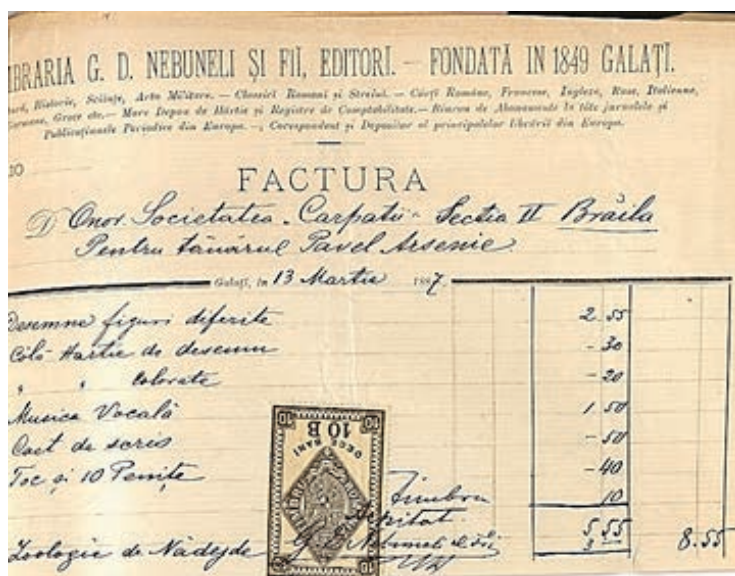 IBRARIA G. D. NEBUNELI ȘI FII, EDITORI. — FONDATĂ IN 1849 GALAȚI.
Historie, Sciințe, Arte Militare. — Classici Romani și Streini. — Cărți Române, Francese, Ingleze, Ruse, Italienne,
Germane, Grece etc. — Mare Depou de Hârtie și Registre de Comptabilitate. — Biurou de Abonamente la tóte jurnalele și
Publicațiunile Periodice din Europa. — Corespondent și Depositar al principalelor librării din Europa.
FACTURA
D Onor. Societatea "Carpatii" Sectia II Brăila
Pentru tânărul Pavel Arsenie
Galați, in 13 Martie 1887.
Desemne figuri diferite 2.55
Côle Hartie de desemn - 30
" " Colorate - 20
Musica Vocală 1 50
Caet de scris - 50
Toc și 10 Penițe - 40
Timbru 10
5 55
Zoologie de Nădejde 3 — 8.55
G. D. Nebuneli & Fii
10
10
10 B
DECE BANI
TIMBRU